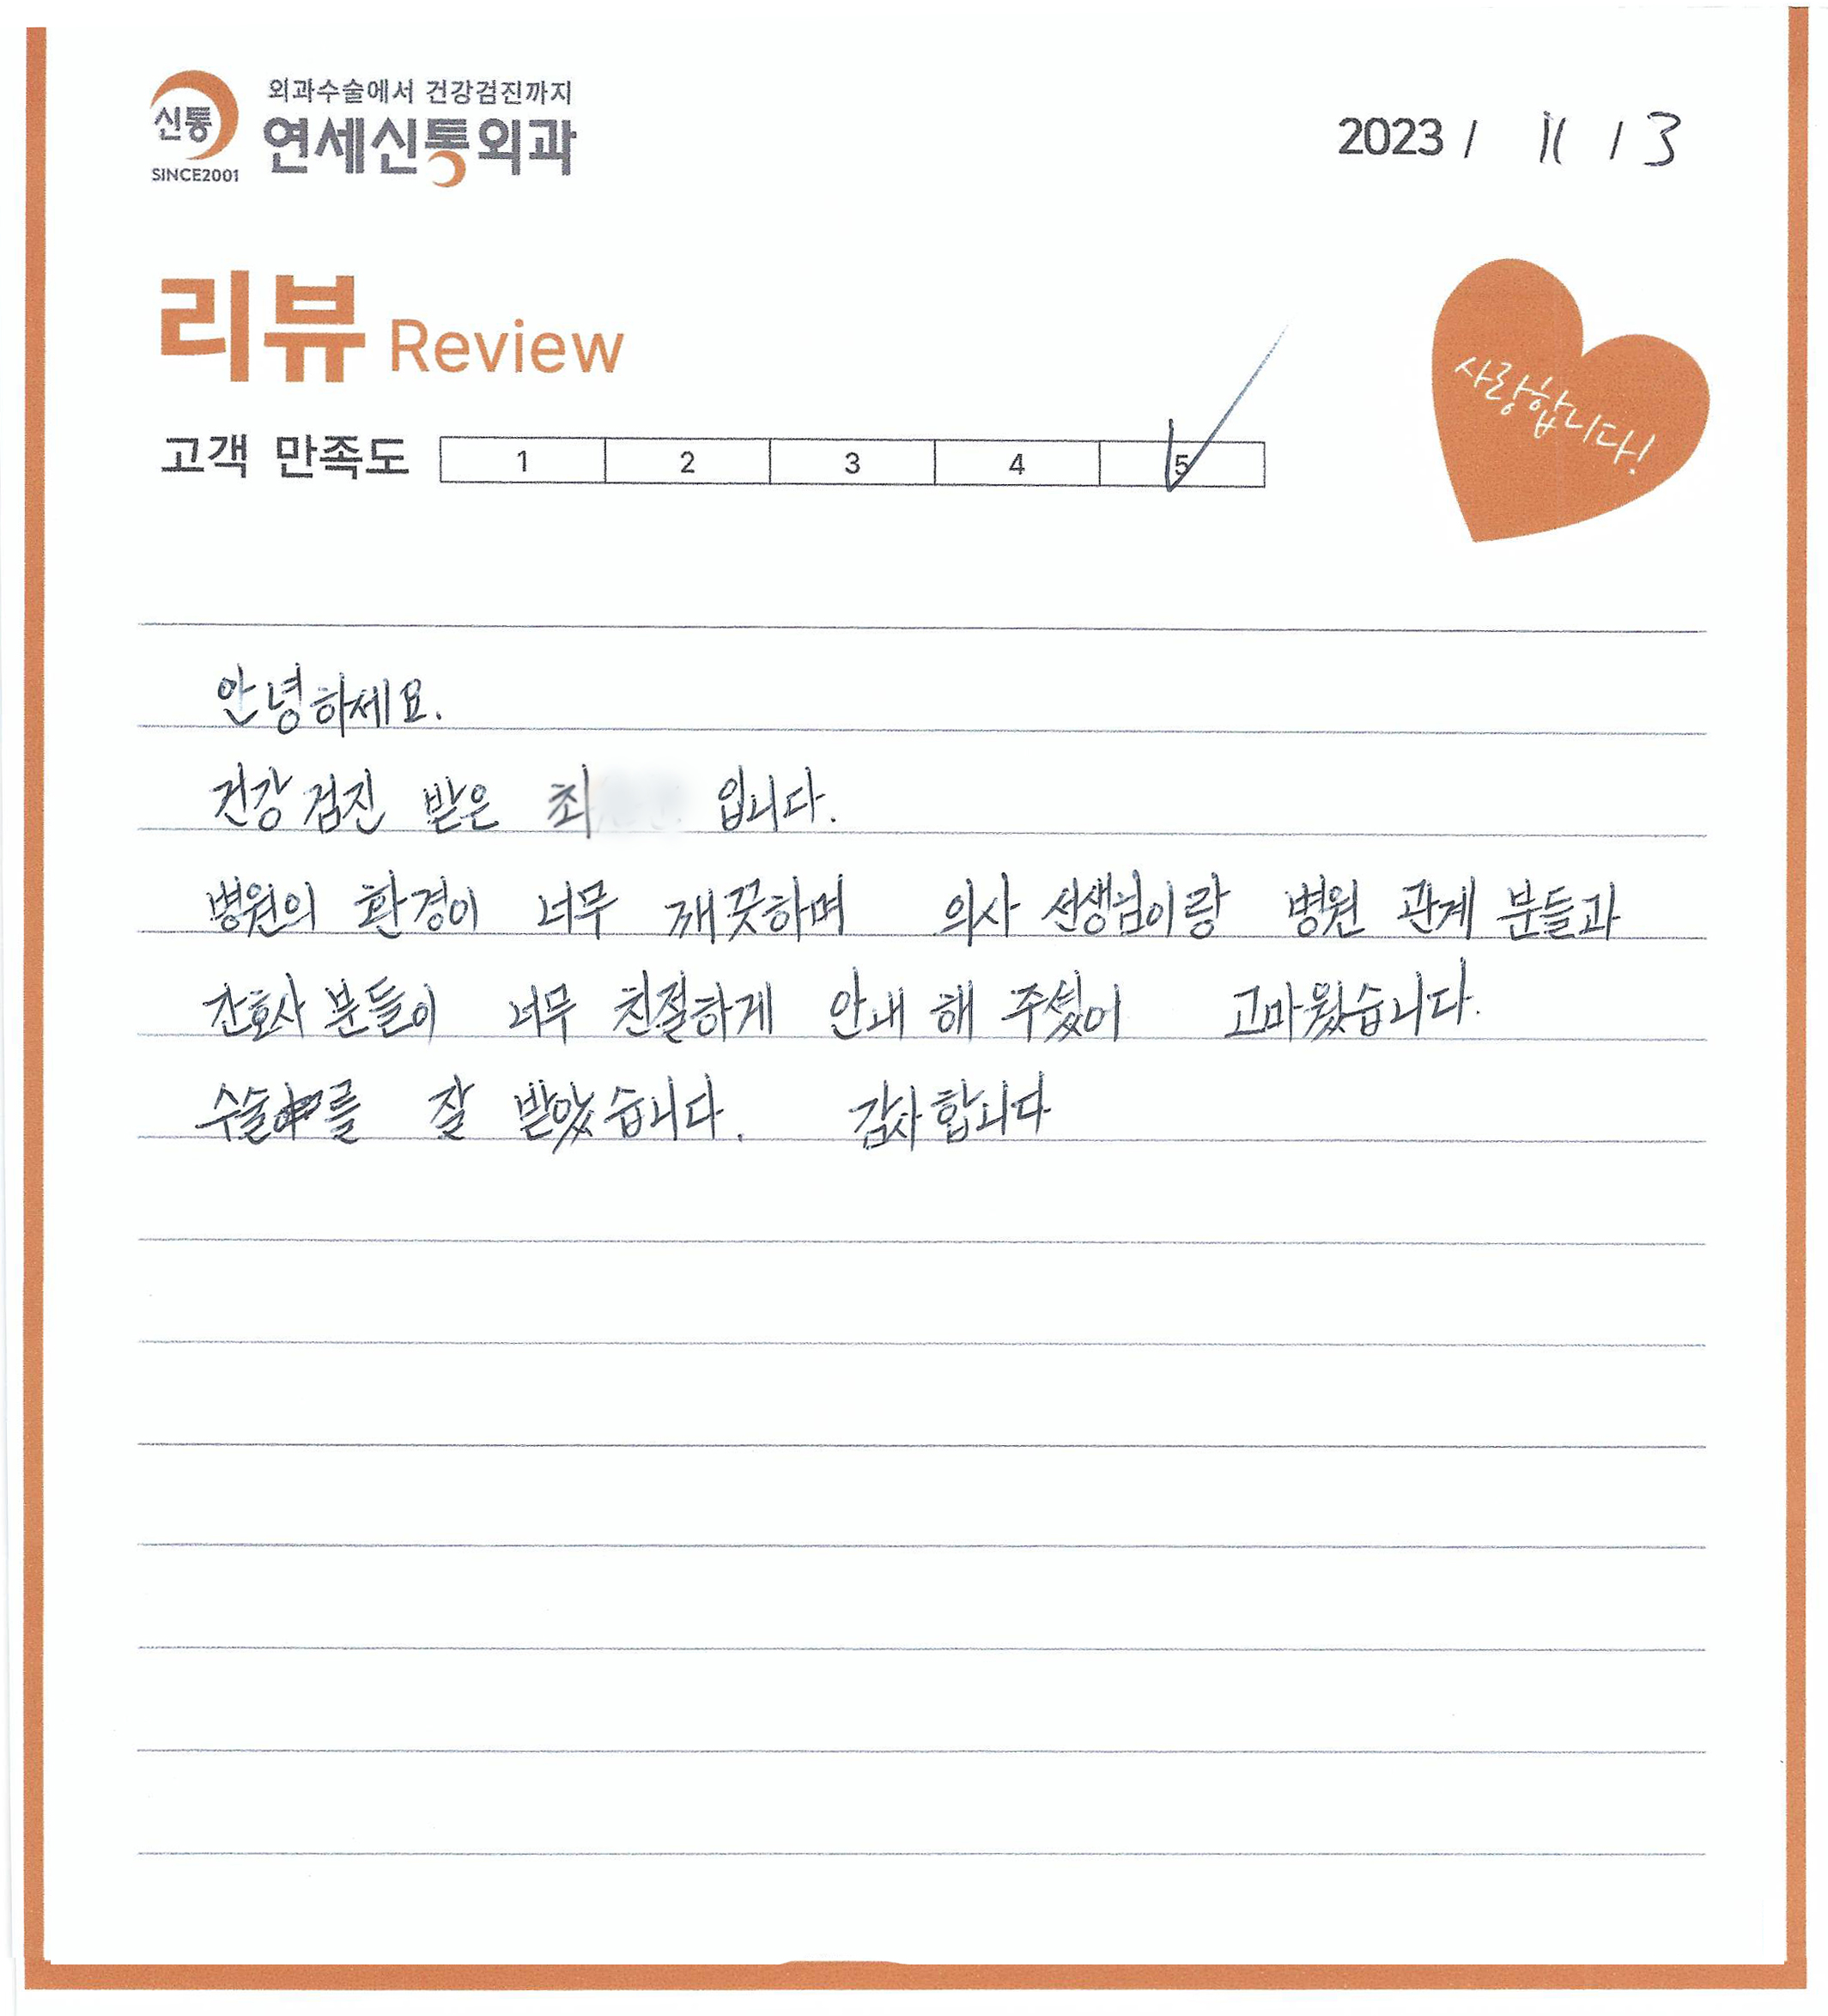 신통
SINCE2001
외과수술에서 건강검진까지
연세신통외과
2023 / 11 / 3
리뷰 Review
사랑합니다!
고객 만족도 1 2 3 4 5
안녕하세요.
건강검진 받은 최 입니다.
병원의 환경이 너무 깨끗하며 의사 선생님이랑 병원 관계 분들과
간호사 분들이 너무 친절하게 안내 해 주셨어 고마웠습니다.
수술를 잘 받았습니다. 감사합니다